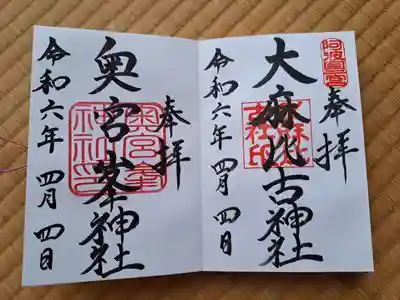 阿波一宮
奉拝
大麻比古神社
令和六年 四月 四日
奉拝
奥宮峯神社
令和六年 四月 四日